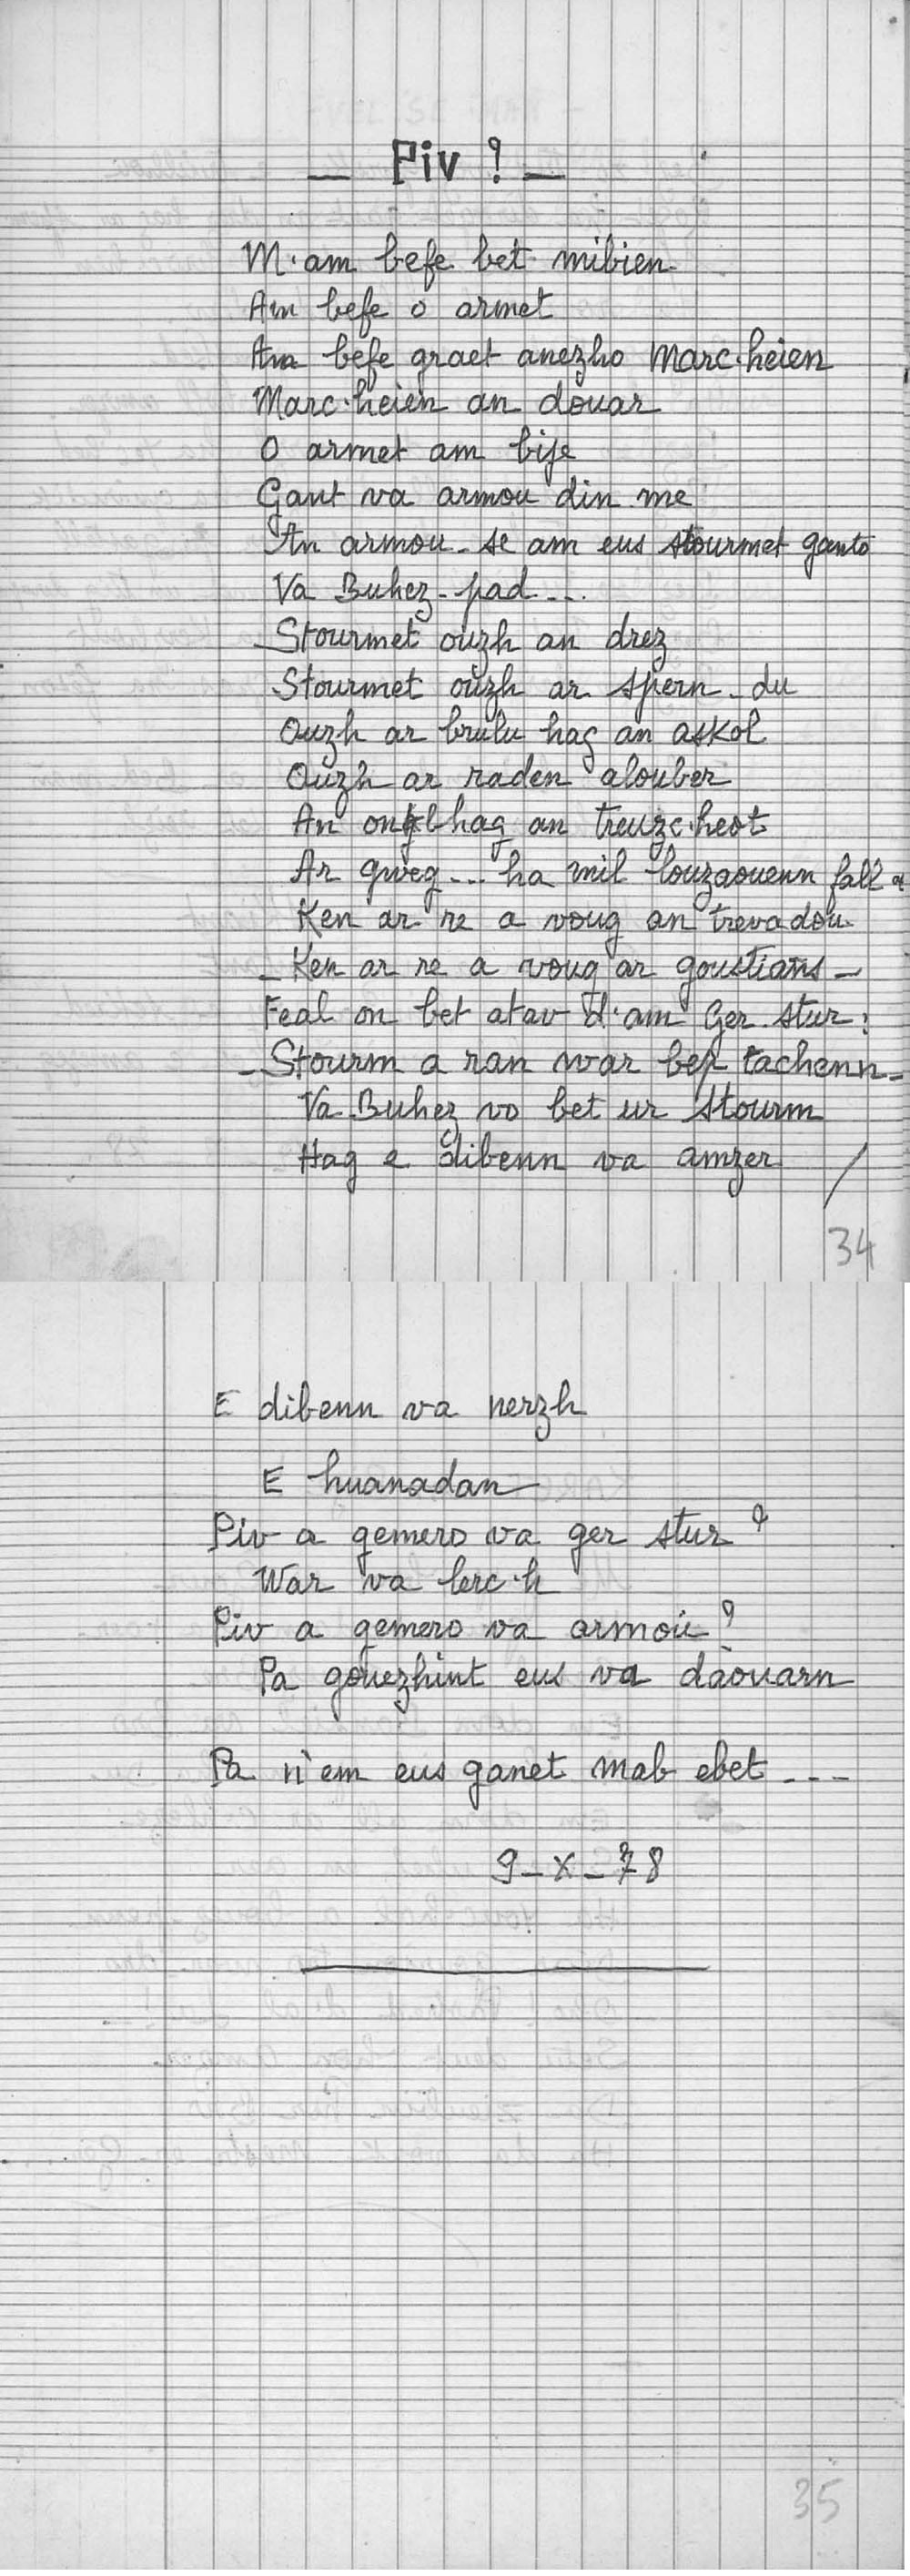 — Piv ? —
M'am befe bet mibien
Am befe o armet
Am befe graet anezho Marc'heien
Marc'heien an douar
O armet am bije
Gant va armou din-me
An armou-se am eus stourmet ganto
Va Buhez-pad...
Stourmet ouzh an drez
Stourmet ouzh ar spern-du
Ouzh ar brulu hag an askol
Ouzh ar raden alouber
An hag an treuzc'heot
Ar gweg... ha mil louzaouenn fall
Ken ar re a voug an trevadou
– Ken ar re a voug ar goustiañs –
Feal on bet atav d'am Ger-stur :
– Stourm a ran war bep tachenn –
Va Buhez vo bet ur stourm
Hag e dibenn va amzer
34
E dibenn va nerzh
E huanadan
Piv a gemero va ger stur ?
War va lerc'h
Piv a gemero va armoù ?
Pa gouezhint eus va daouarn
Pa n'em eus ganet mab ebet ...
9-X-78
35